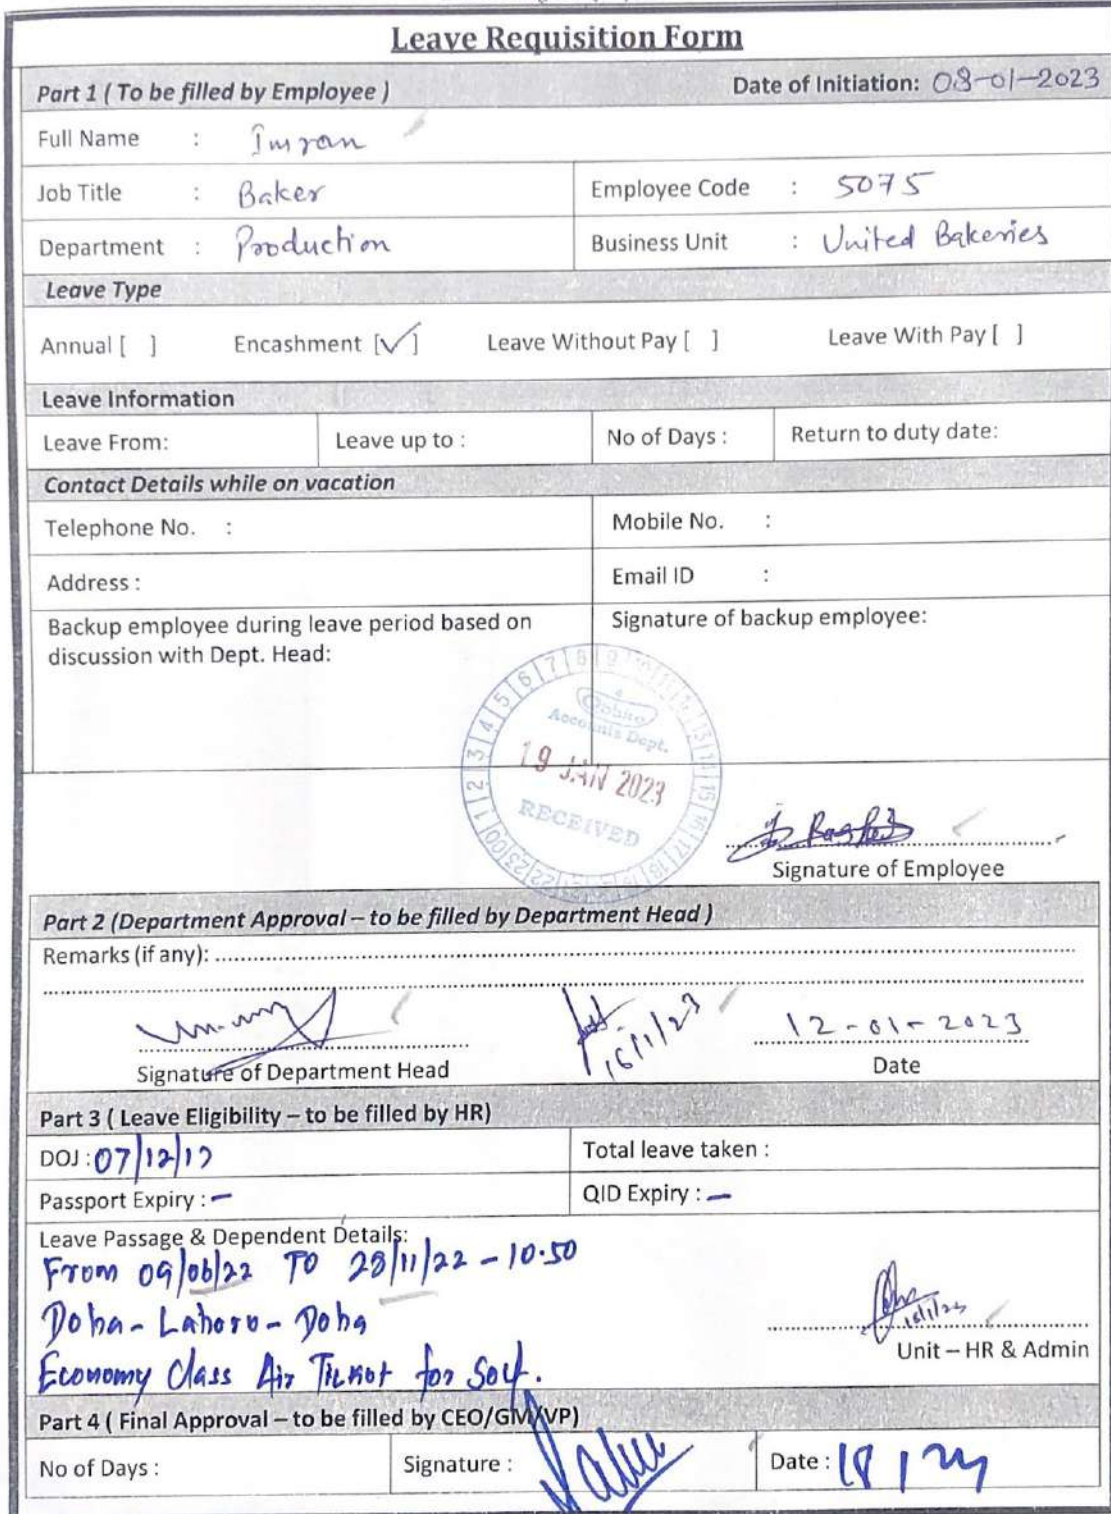 Leave Requisition Form
Part 1 ( To be filled by Employee ) Date of Initiation: 08-01-2023
Full Name : Imran
Job Title : Baker Employee Code : 5075
Department : Production Business Unit : United Bakeries
Leave Type
Annual [ ] Encashment [✓] Leave Without Pay [ ] Leave With Pay [ ]
Leave Information
Leave From: Leave up to : No of Days : Return to duty date:
Contact Details while on vacation
Telephone No. : Mobile No. :
Address : Email ID :
Backup employee during leave period based on discussion with Dept. Head: Signature of backup employee:
Accounts Dept.
19 JAN 2023
RECEIVED
Signature of Employee
Part 2 (Department Approval – to be filled by Department Head )
Remarks (if any):
16/1/23 12-01-2023
Signature of Department Head Date
Part 3 ( Leave Eligibility – to be filled by HR)
DOJ : 07/12/17 Total leave taken :
Passport Expiry : – QID Expiry : –
Leave Passage & Dependent Details:
From 09/06/22 TO 28/11/22 - 10.50
Doha - Lahore - Doha
Unit – HR & Admin
Economy Class Air Ticket for Self.
Part 4 ( Final Approval – to be filled by CEO/GM/VP)
No of Days : Signature : Date : 18